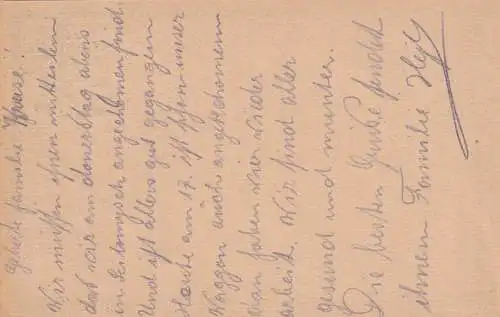 geert familie Krause!
Wir miessen ihnen mitteilen
das wir am donerstag abens
in angekomen sind.
Und ist alles gut gegangen
Heute am 17. ist schon unser
Waggon auch angekommen
dan haben wier wieder
arbeit. Wir sind aller
gesund und munter.
Die besten Griße sendet
ihnen Familie